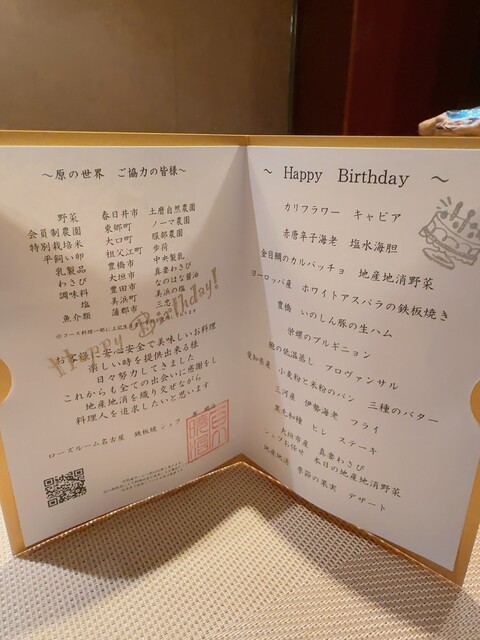 ～原の世界 ご協力の皆様～
野菜 春日井市 土磨自然農園
会員制農園 東郷町 ノーマ農園
特別栽培米 大口町 服部農園
平飼い卵 祖父江町 歩荷
乳製品 豊橋市 中央製乳
わさび 大垣市 真妻わさび
調味料 豊田市 なのはな醤油
塩 美浜町 美浜の塩
魚介類 蒲郡市
Happy Birthday!
お客様に安心安全で美味しいお料理
楽しい時を提供出来る様
日々努力してきました
これからも全ての出会いに感謝をし
地産地消を織り交ぜながら
料理人を追求したいと思います
ローズルーム名古屋 鉄板焼 シェフ
～ Happy Birthday ～
カリフラワー キャビア
赤唐辛子海老 塩水海胆
金目鯛のカルパッチョ 地産地消野菜
ヨーロッパ産 ホワイトアスパラの鉄板焼き
豊橋 いのしん豚の生ハム
栄螺のブルギニョン
鮑の低温蒸し プロヴァンサル
愛知県産 小麦粉と米粉のパン 三種のバター
三河産 伊勢海老 フライ
黒毛和種 ヒレ ステーキ
大垣市産 真妻わさび
シェフお任せ 本日の地産地消野菜
地産地消 季節の果実 デザート